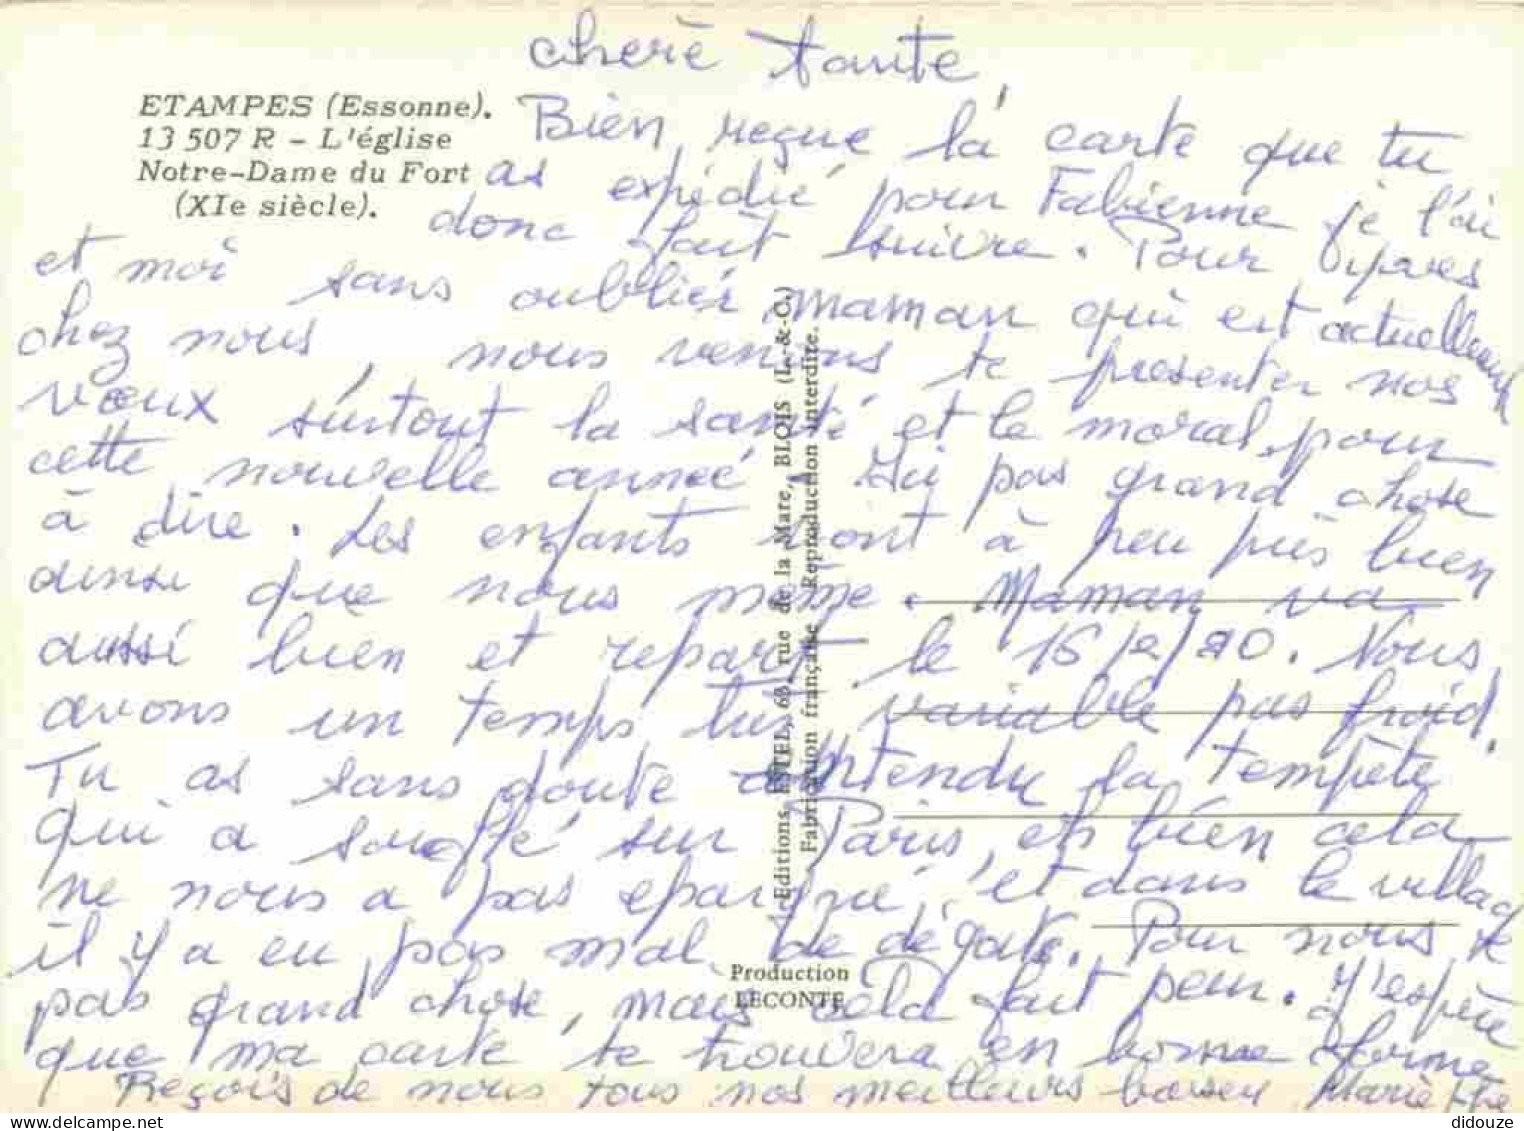 chère tante,
ETAMPES (Essonne).
13 507 R - L'église
Notre-Dame du Fort
(XIe siècle).
Bien reçue la carte que tu
as expédié pour Fabienne je l'ai
donc fait suivre. Pour Yves
et moi sans oublier maman qui est actuellement
chez nous, nous venons te presenter nos
vœux surtout la santé et le moral pour
cette nouvelle année. Ici pas grand chose
à dire. Les enfants vont à peu près bien
ainsi que nous même. Maman va
aussi bien et repart le 16/2/90. Nous
avons un temps très variable pas froid.
Tu as sans doute entendu la tempête
qui a soufflé sur Paris, eh bien cela
ne nous a pas epargné, et dans le village
il y a eu pas mal de dégats. Pour nous
pas grand chose, mais cela fait peur. J'espère
que ma carte te trouvera en bonne forme
Reçois de nous tous nos meilleurs baisers Marie
Editions ESTEL, 63, rue de la Mare, BLOIS (L.-&-C.)
Fabrication française Reproduction interdite.
Production
LECONTE
didouze
delcampe.net